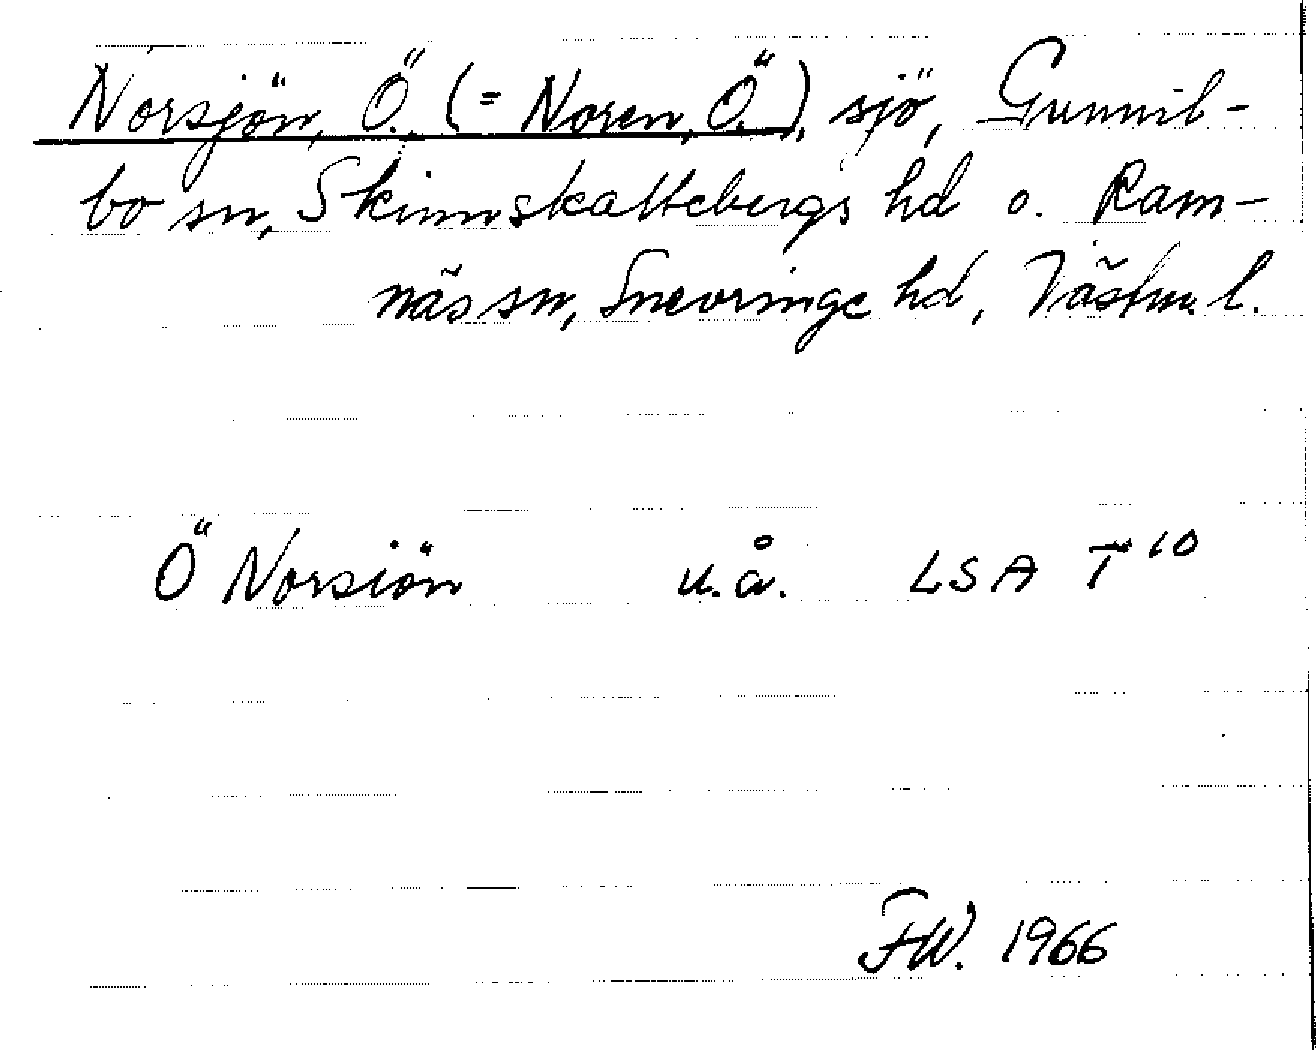 Norsjön, Ö. (= Noren, Ö.), sjö, Gunnil-
bo sn, Skinnskattebergs hd o. Ram-
näs sn, Snevringe hd, Västm. l.
Ö Norsiön u.å. LSA T 10
FW. 1966